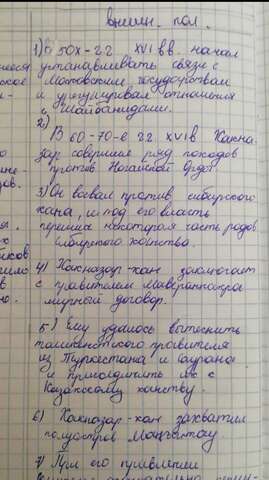 внешн. пол.
1) В 50х-гг. XVI вв. начал
устанавливать связи с
Московским государством
и урегулировал отношения
с Шайбанидами.
2)
В 60-70-е гг. XVI в Хакна-
зар совершил ряд походов
против Ногайской Орды
3) Он воевал против сибирского
хана, и под его власть
перешла некоторая часть родов
Сибирского ханства.
4) Хакназар-хан заключает
с правителем Мавераннахра
мирный договор.
5) Ему удалось вытеснить
ташкентского правителя
из Туркестана и Саурана
и присоединить их с
Казахскому ханству.
6) Хакназар-хан захватил
полуостров Маңғытау.
7) При его правлении